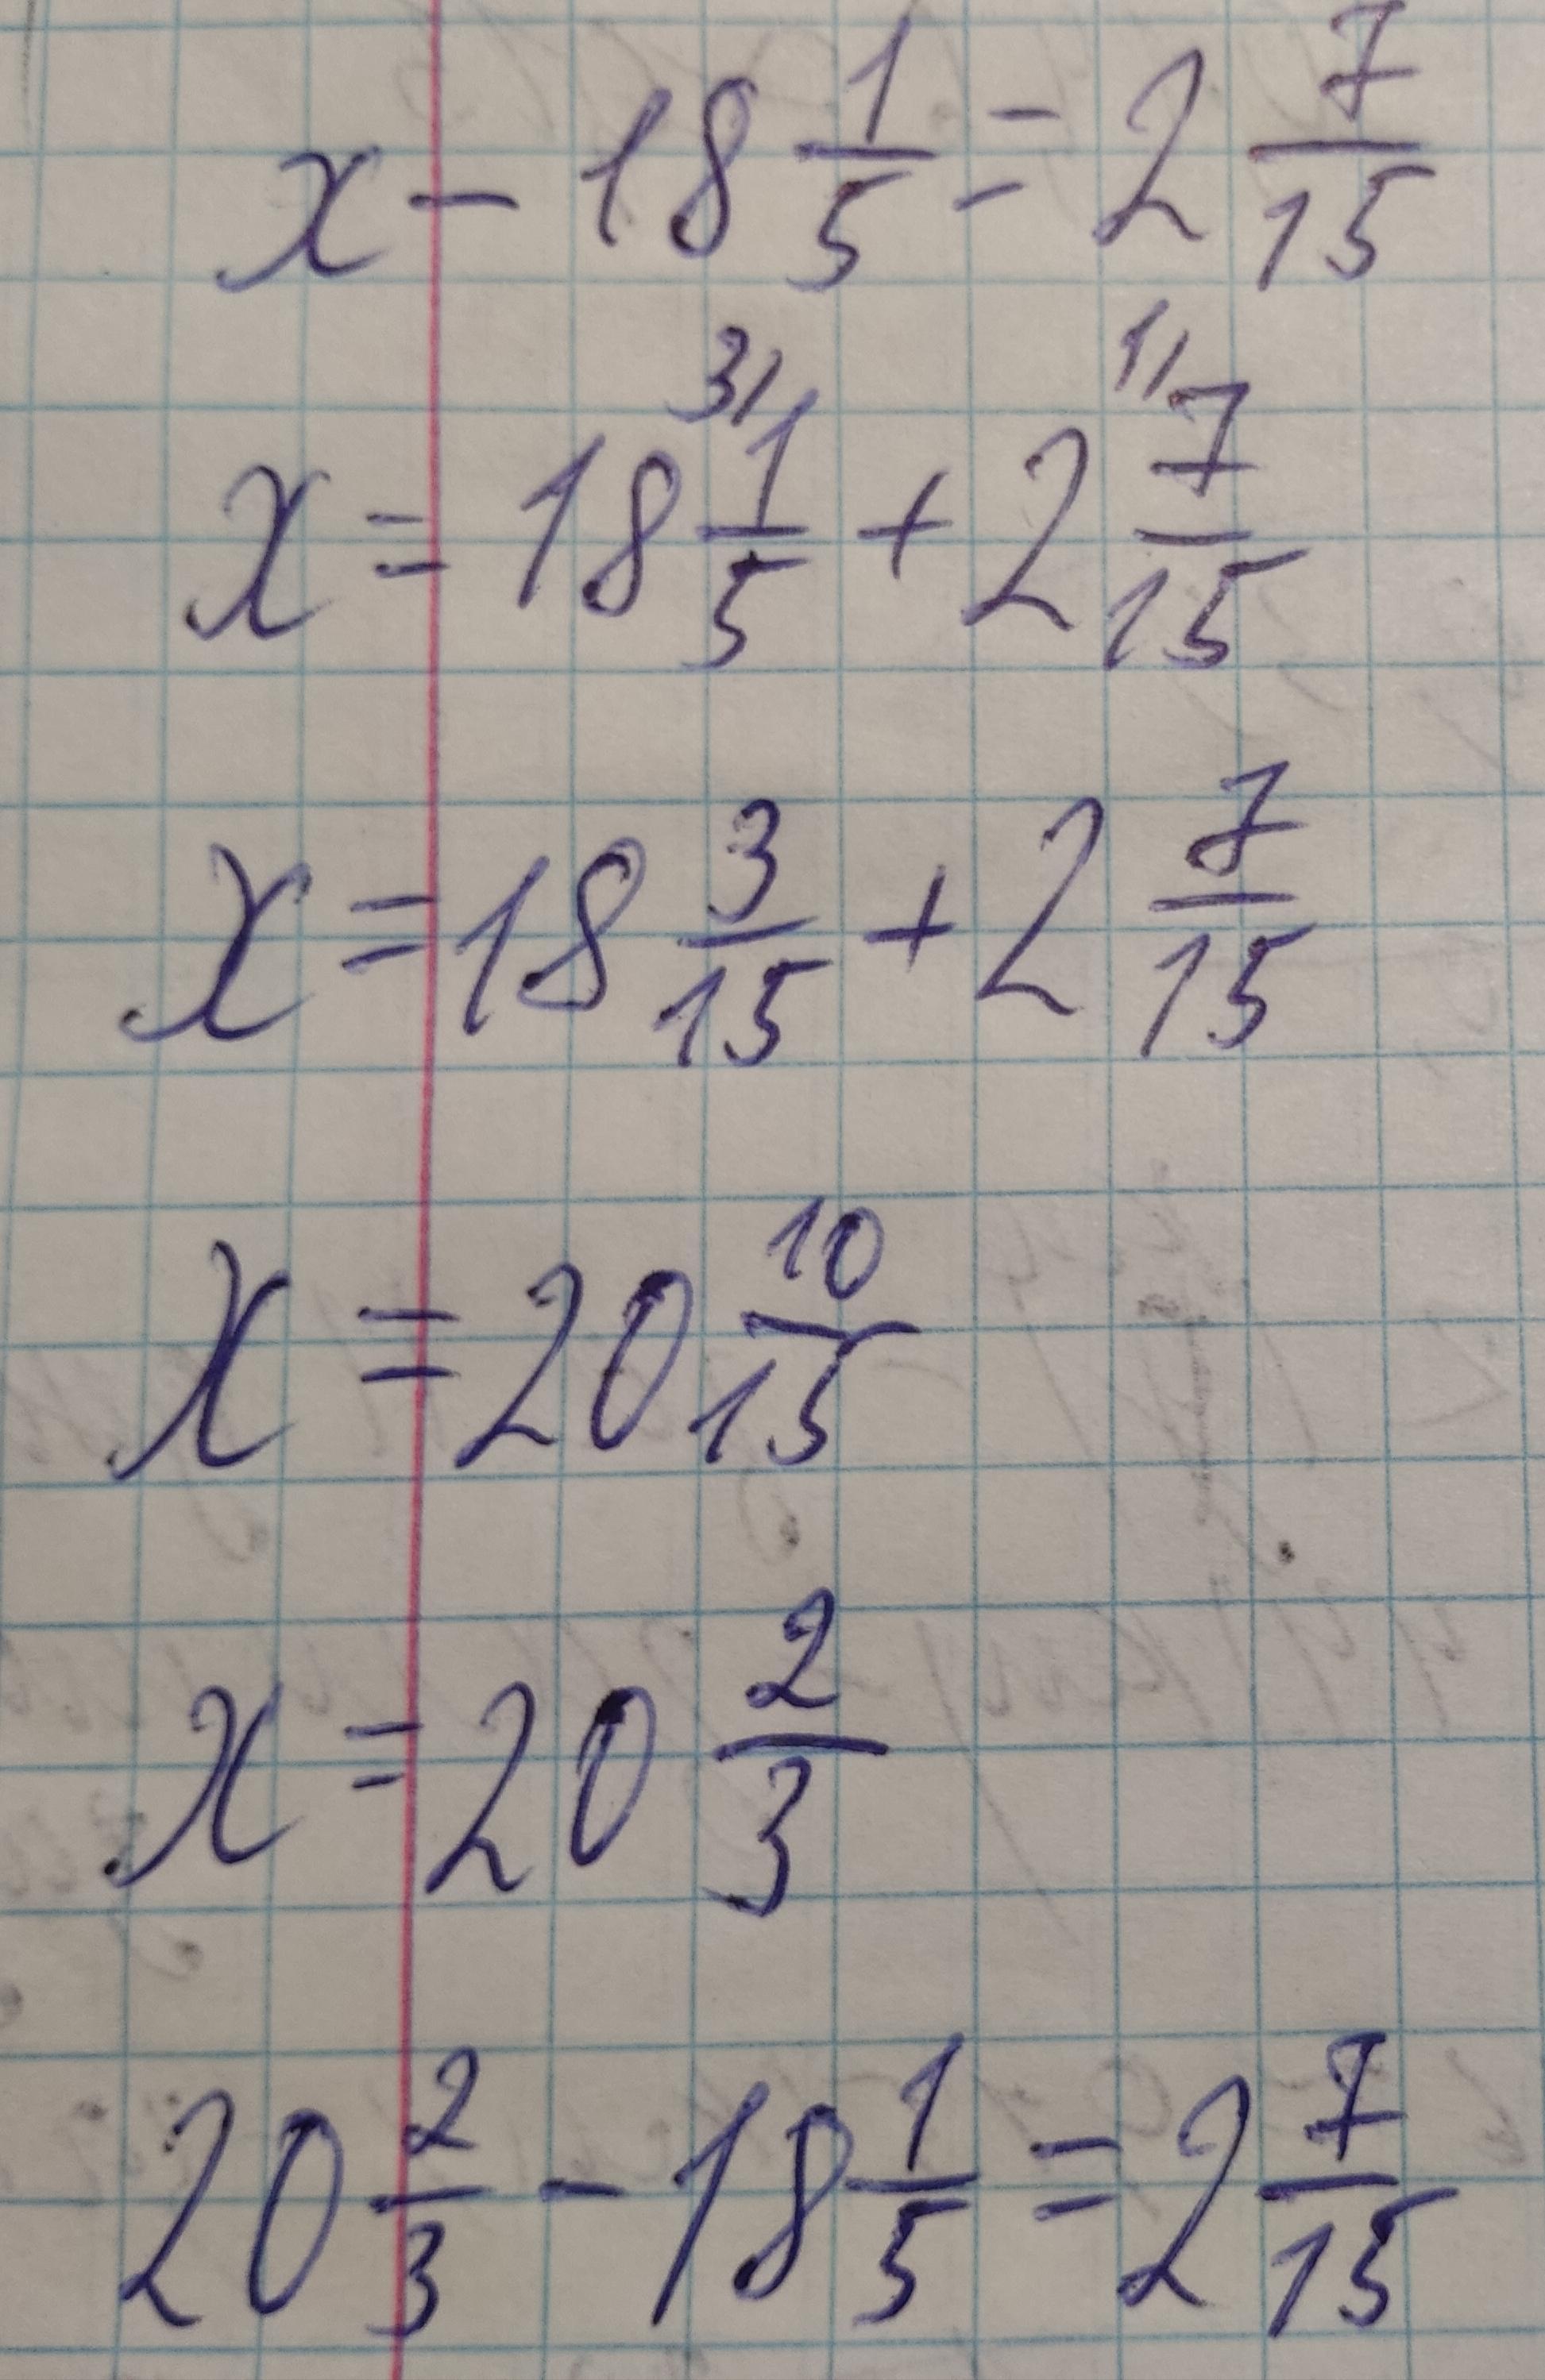 x - 18 1/5 = 2 7/15
x = 18 ³⁄ 1/5 + 2 ¹⁄ 7/15
x = 18 3/15 + 2 7/15
x = 20 10/15
x = 20 2/3
20 2/3 - 18 1/5 = 2 7/15